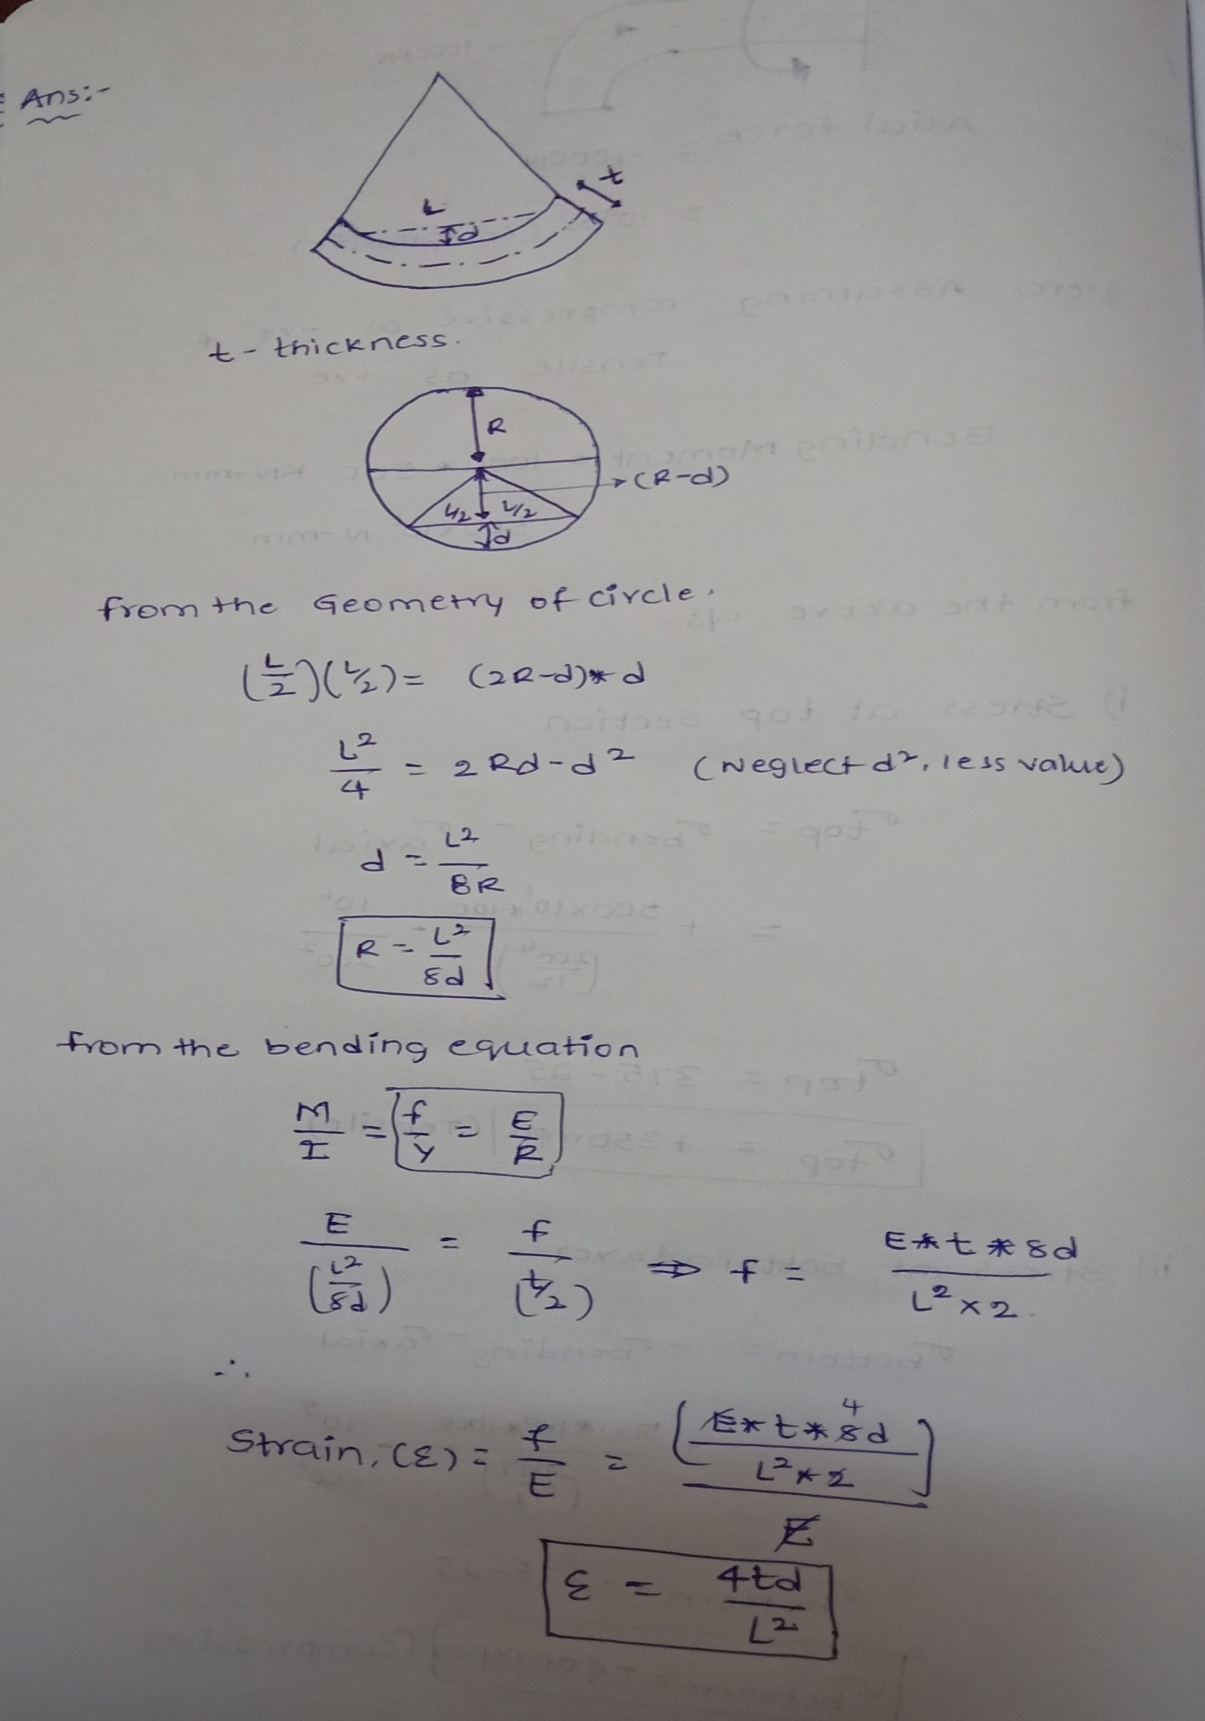 Ans:-
t
L
d
t - thickness.
R
(R-d)
L/2 L/2
d
from the Geometry of circle.
(L/2)(L/2) = (2R-d)*d
L²/4 = 2Rd-d² (Neglect d², less value)
d = L²/8R
R = L²/8d
from the bending equation
M/I = f/y = E/R
E/(L²/8d) = f/(t/2) ⇒ f = E*t*8d/L²×2.
∴
Strain, (ε) = f/E = (E*t*8d/L²*2)/E
4
ε = 4td/L²